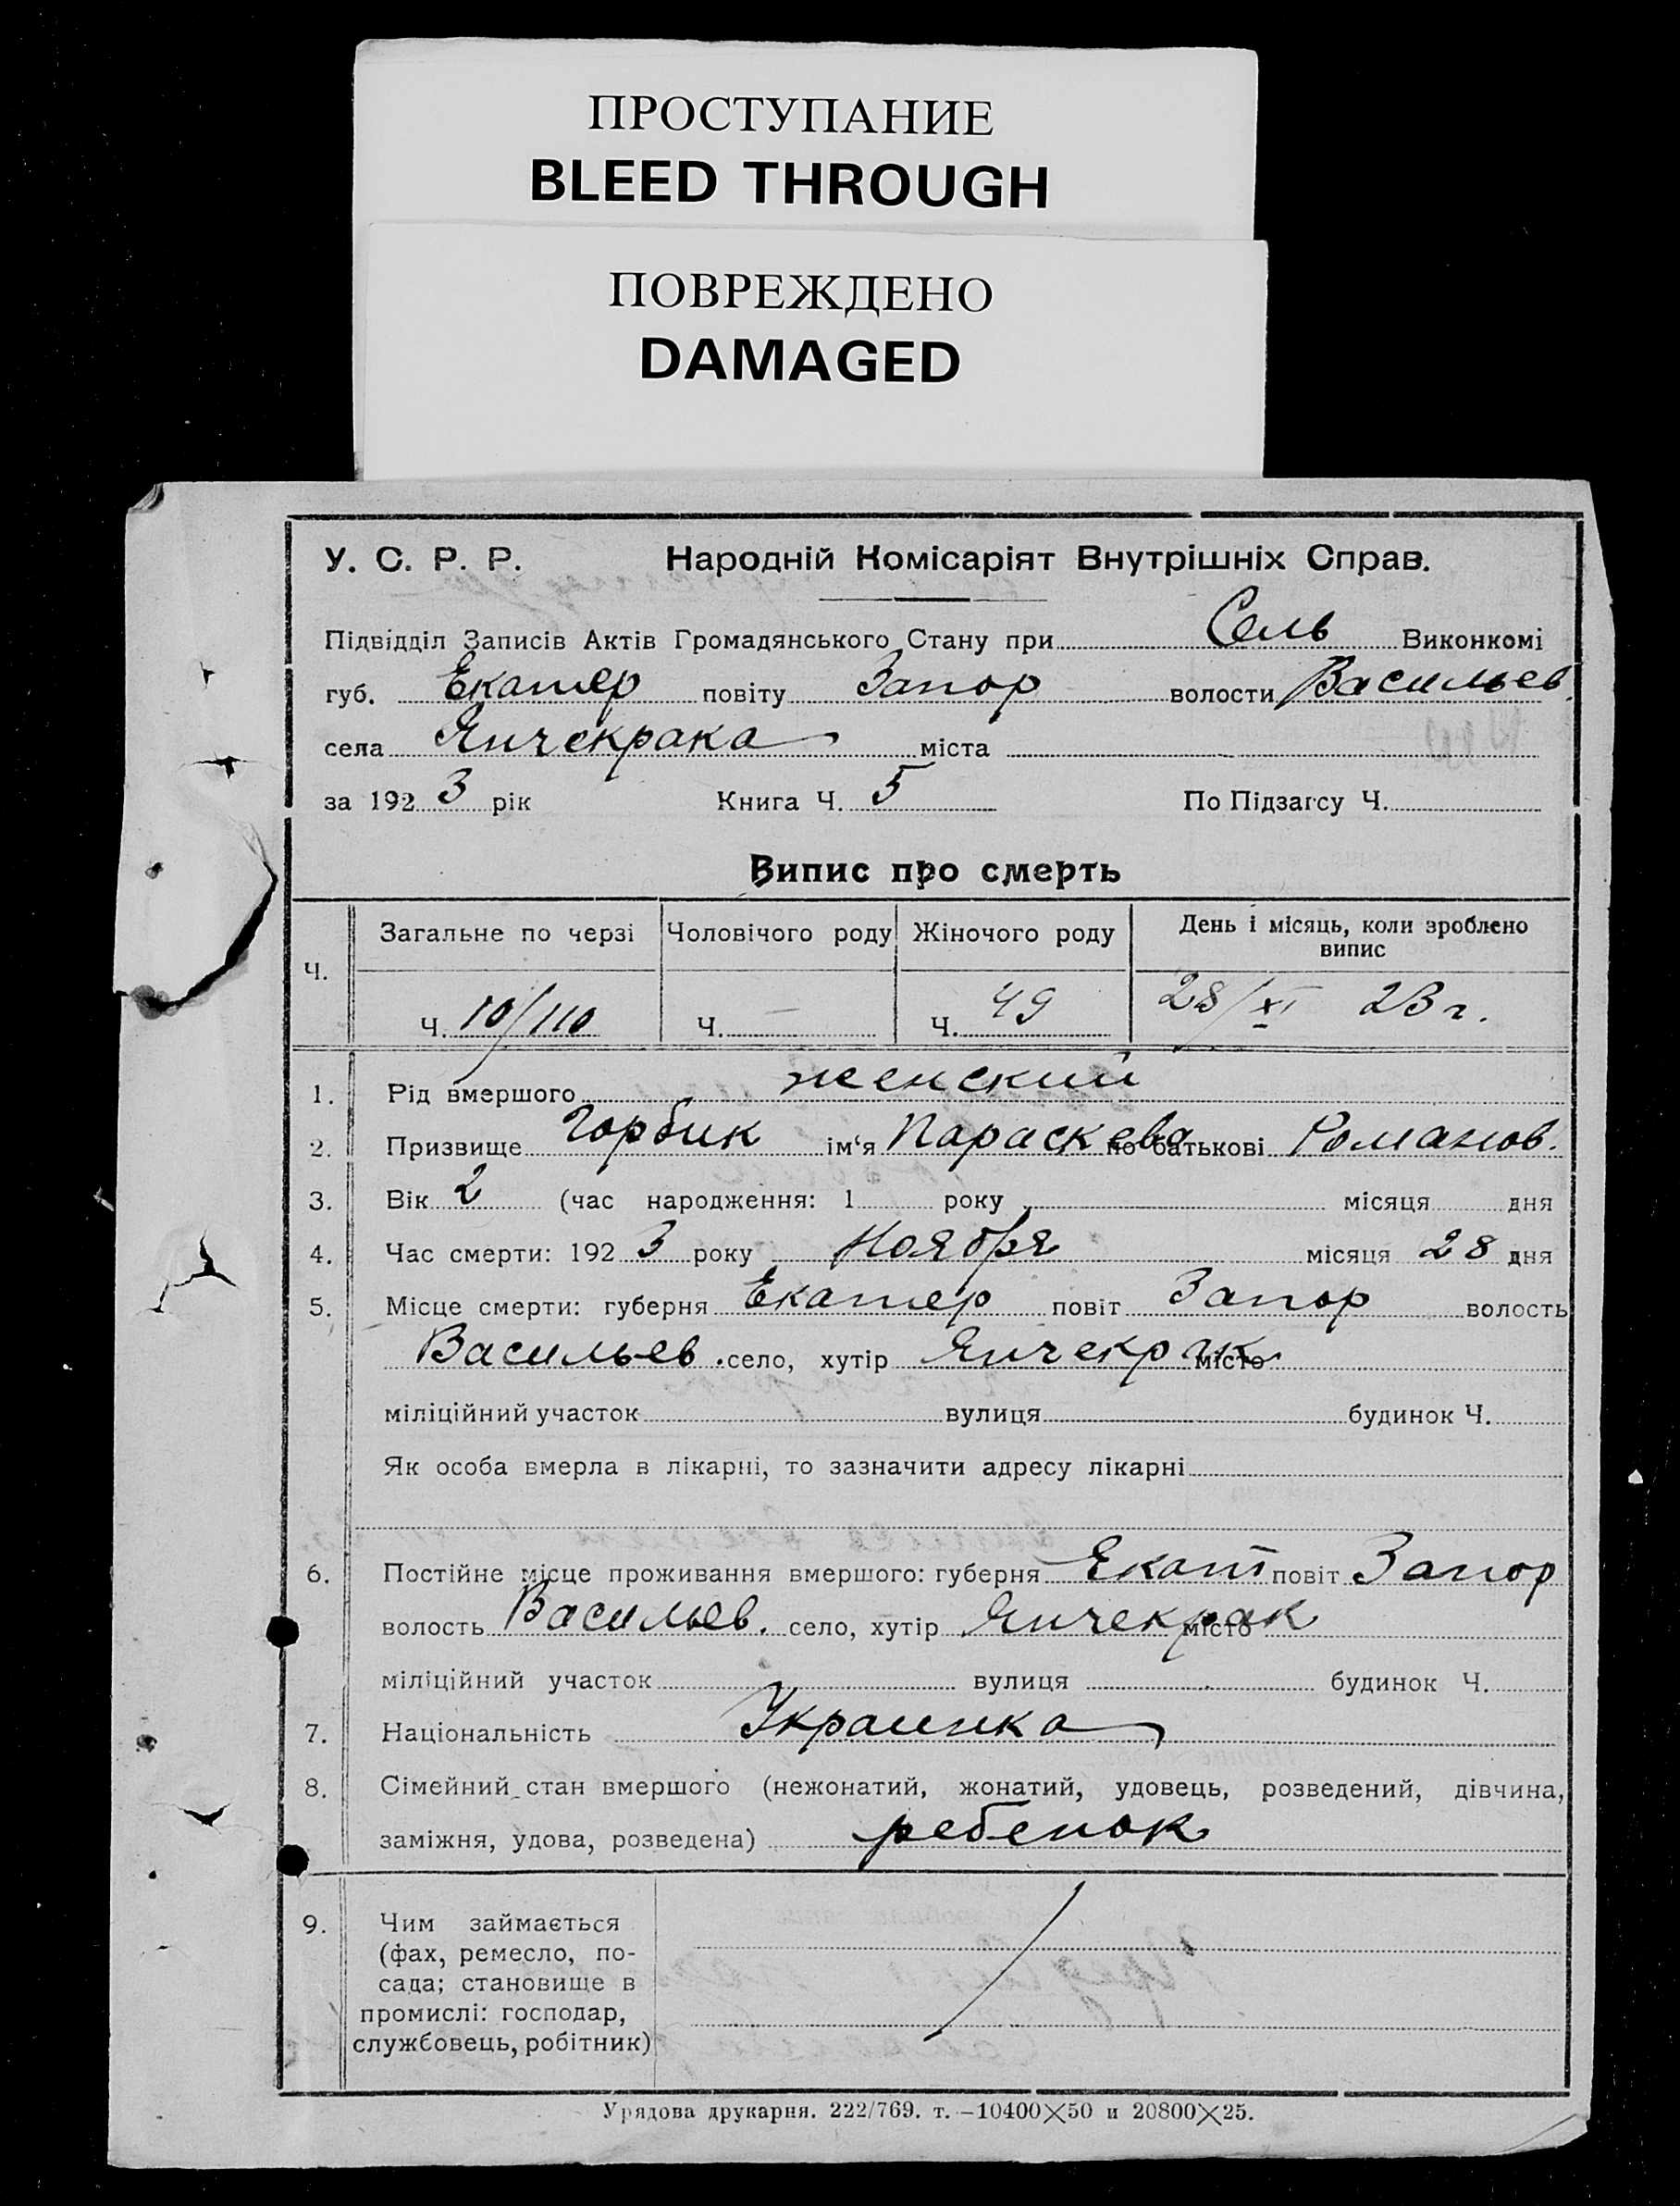 ПРОСТУПАНИЕ
BLEED THROUGH
ПОВРЕЖДЕНО
DAMAGED
У. С. Р. Р. Народній Комісаріят Внутрішніх Справ.
Підвідділ Записів Актів Громадянського Стану при Сель Виконкомі
губ. Екатер повіту Запор волости Васильев.
села Янчекрака міста
за 1923 рік Книга Ч. 5 По Підзагсу Ч.
Випис про смерть
Ч. Загальне по черзі Чоловічого роду Жіночого роду День і місяць, коли зроблено
випис
Ч. 10/110 Ч. — Ч. 49 28/XI 23 г.
1. Рід вмершого женский
2. Призвище Горбик ім‘я Параскева по батькові Романов.
3. Вік 2 (час народження: 1 року місяця дня
4. Час смерти: 1923 року Ноября місяця 28 дня
5. Місце смерти: губерня Екатер повіт Запор волость
Васильев. село, хутір Янчекрак місто
міліційний участок вулиця будинок Ч.
Як особа вмерла в лікарні, то зазначити адресу лікарні
6. Постійне місце проживання вмершого: губерня Екат повіт Запор
волость Васильев. село, хутір Янчекрак місто
міліційний участок вулиця будинок Ч.
7. Національність Украинка
8. Сімейний стан вмершого (нежонатий, жонатий, удовець, розведений, дівчина,
заміжня, удова, розведена) ребенок
9. Чим займається
(фах, ремесло, по-
сада; становище в
промислі: господар,
службовець, робітник)
Урядова друкарня. 222/769. т. –10400×50 и 20800×25.